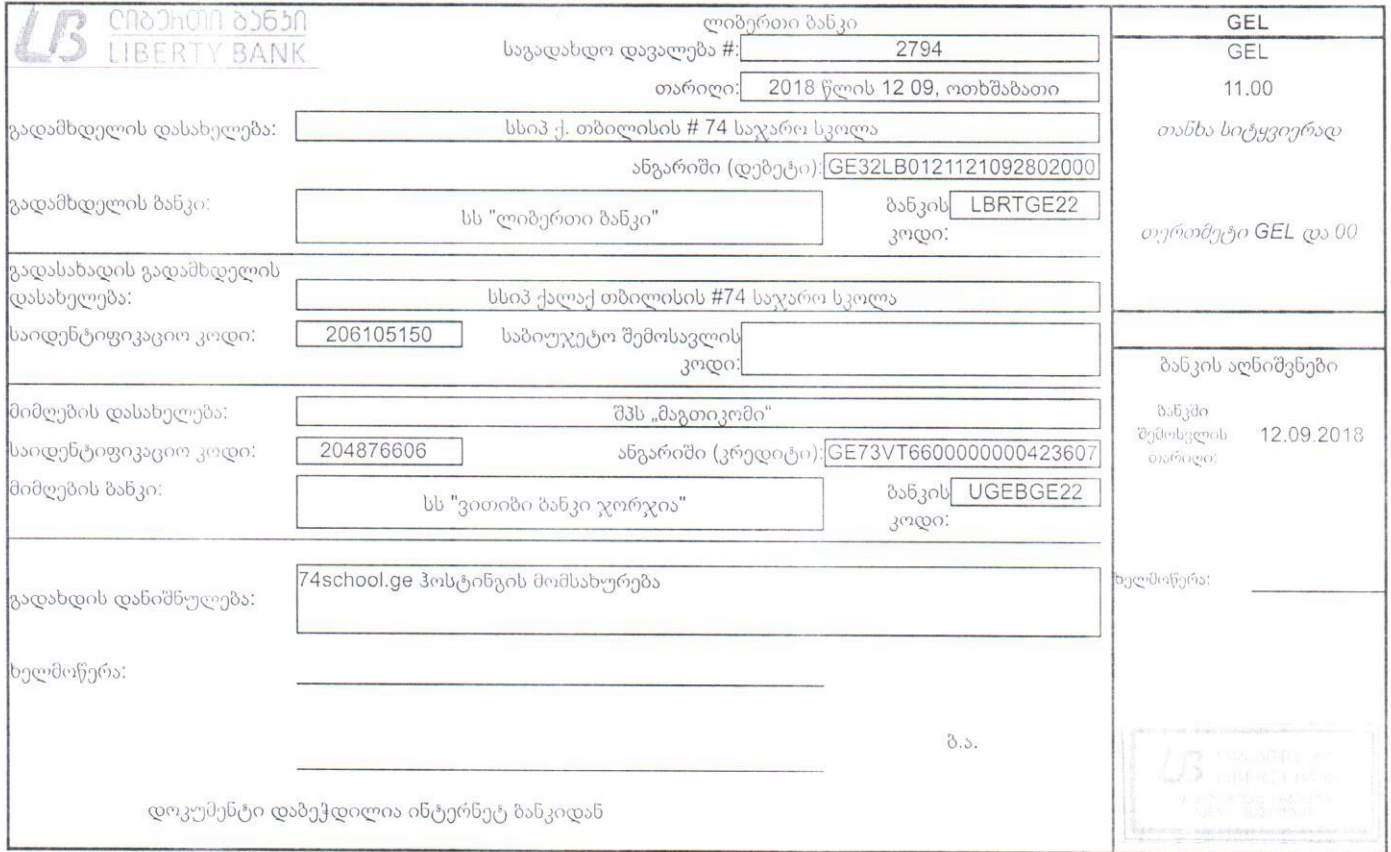 ლიბერთი ბანკი
LIBERTY BANK
ლიბერთი ბანკი
საგადახდო დავალება #: 2794
თარიღი: 2018 წლის 12 09, ოთხშაბათი
გადამხდელის დასახელება: სსიპ ქ. თბილისის # 74 საჯარო სკოლა
ანგარიში (დებეტი): GE32LB0121121092802000
გადამხდელის ბანკი: სს "ლიბერთი ბანკი" ბანკის კოდი: LBRTGE22
გადასახადის გადამხდელის
დასახელება: სსიპ ქალაქ თბილისის #74 საჯარო სკოლა
საიდენტიფიკაციო კოდი: 206105150 საბიუჯეტო შემოსავლის
კოდი:
მიმღების დასახელება: შპს „მაგთიკომი“
საიდენტიფიკაციო კოდი: 204876606 ანგარიში (კრედიტი): GE73VT6600000000423607
მიმღების ბანკი: სს "ვითიბი ბანკი ჯორჯია" ბანკის კოდი: UGEBGE22
გადახდის დანიშნულება: 74school.ge ჰოსტინგის მომსახურება
ხელმოწერა:
ბ.ა.
დოკუმენტი დაბეჭდილია ინტერნეტ ბანკიდან
GEL
GEL
11.00
თანხა სიტყვიერად
თერთმეტი GEL და 00
ბანკის აღნიშვნები
ბანკში
შემოსვლის 12.09.2018
თარიღი:
ხელმოწერა: